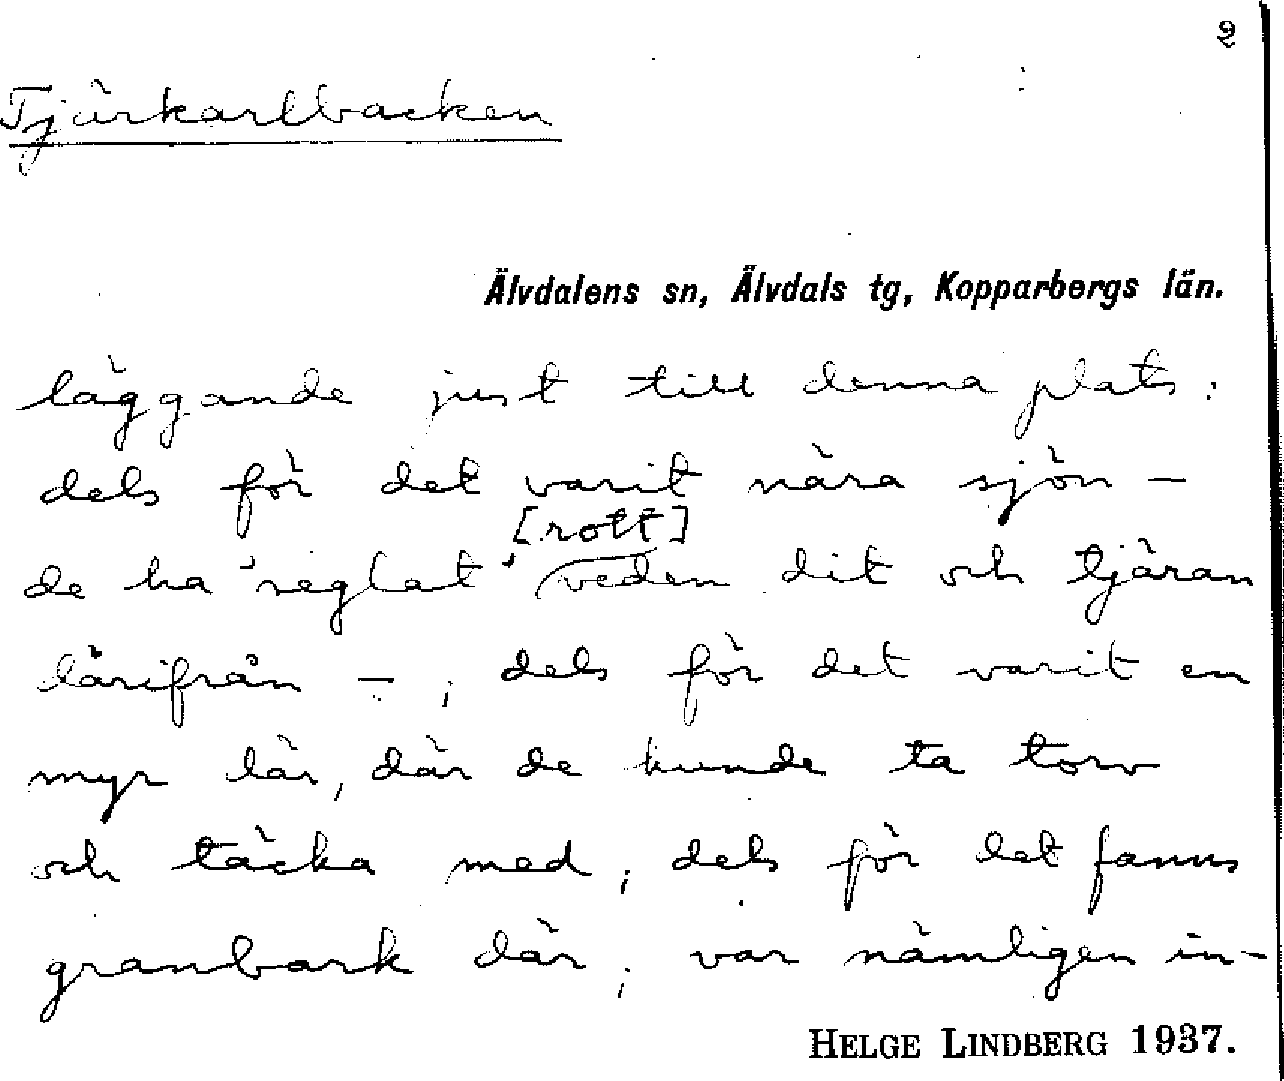 2
Tjärkarlbacken
Älvdalens sn, Älvdals tg, Kopparbergs län.
läggande just till denna plats:
dels för det varit nära sjön –
[rott]
de ha 'reglat' veden dit och tjäran
därifrån – ; dels för det varit en
myr där, där de kunde ta torv
och täcka med; dels för det fanns
granbark där; var nämligen in-
HELGE LINDBERG 1937.